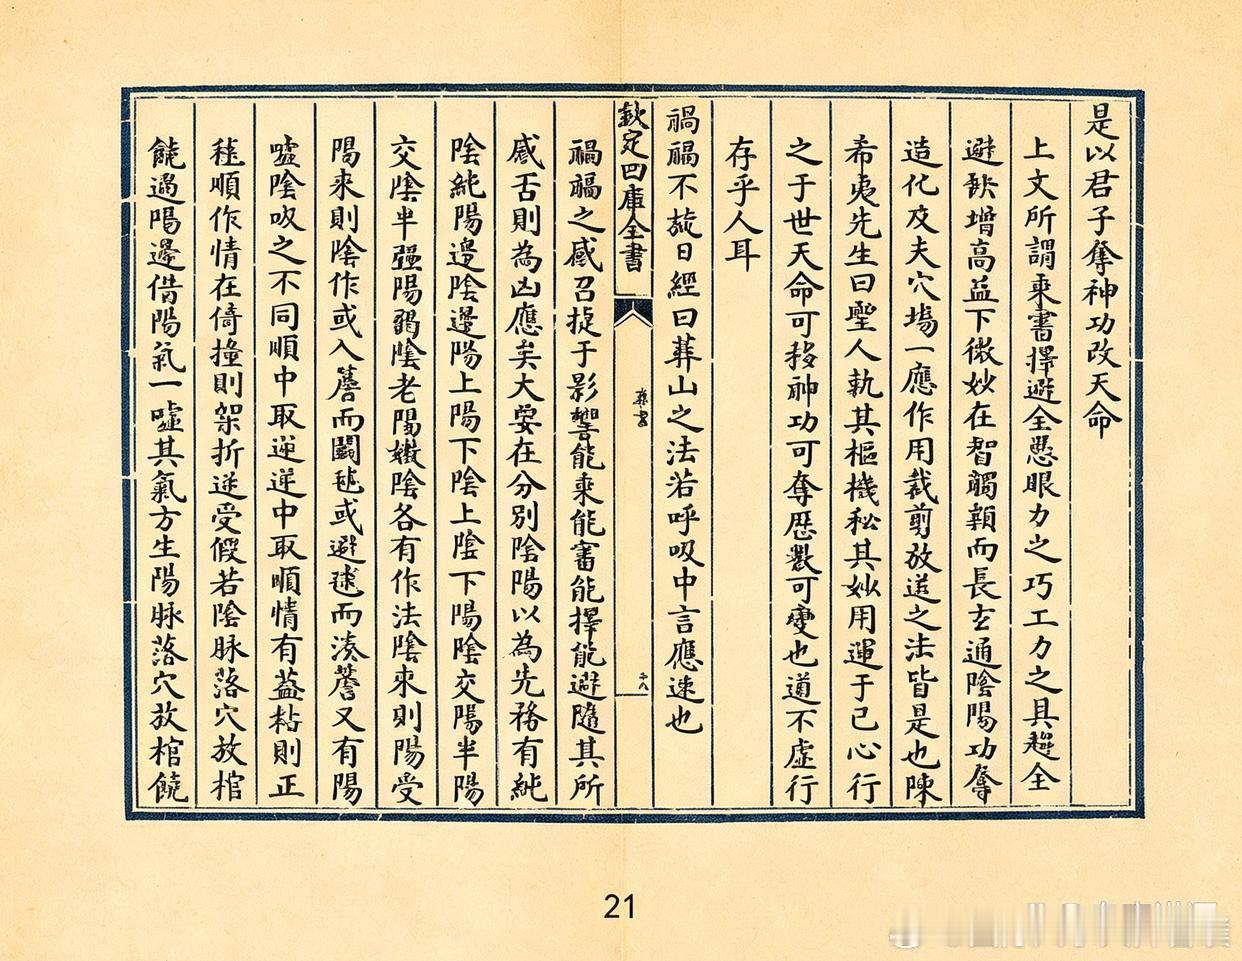 是以君子奪神功改天命
上文所謂乘書擇避全愚眼力之巧工力之具趨全
避缺增高益下微妙在智觸穎而長玄通陰陽功奪
造化及夫穴場一應作用裁剪放送之法皆是也陳
希夷先生曰聖人執其樞機秘其妙用運于己心行
之于世天命可移神功可奪歷數可變也道不虛行
存乎人耳
禍福不旋日經曰葬山之法若呼吸中言應速也
欽定四庫全書
葬書
十八
禍福之感召捷于影響能乘能審能擇能避隨其所
感否則為凶應矣大要在分別陰陽以為先務有純
陰純陽邉陰邉陽上陽下陰上陰下陽陰交陽半陽
交陰半强陽弱陰老陽嫩陰各有作法陰來則陽受
陽來則陰作或入簷而鬭毬或避毬而湊簷又有陽
噓陰吸之不同順中取逆逆中取順情有葢粘則正
毬順作情在倚撞則架折逆受假若陰脉落穴放棺
饒過陽邉借陽氣一噓其氣方生陽脉落穴放棺饒
21